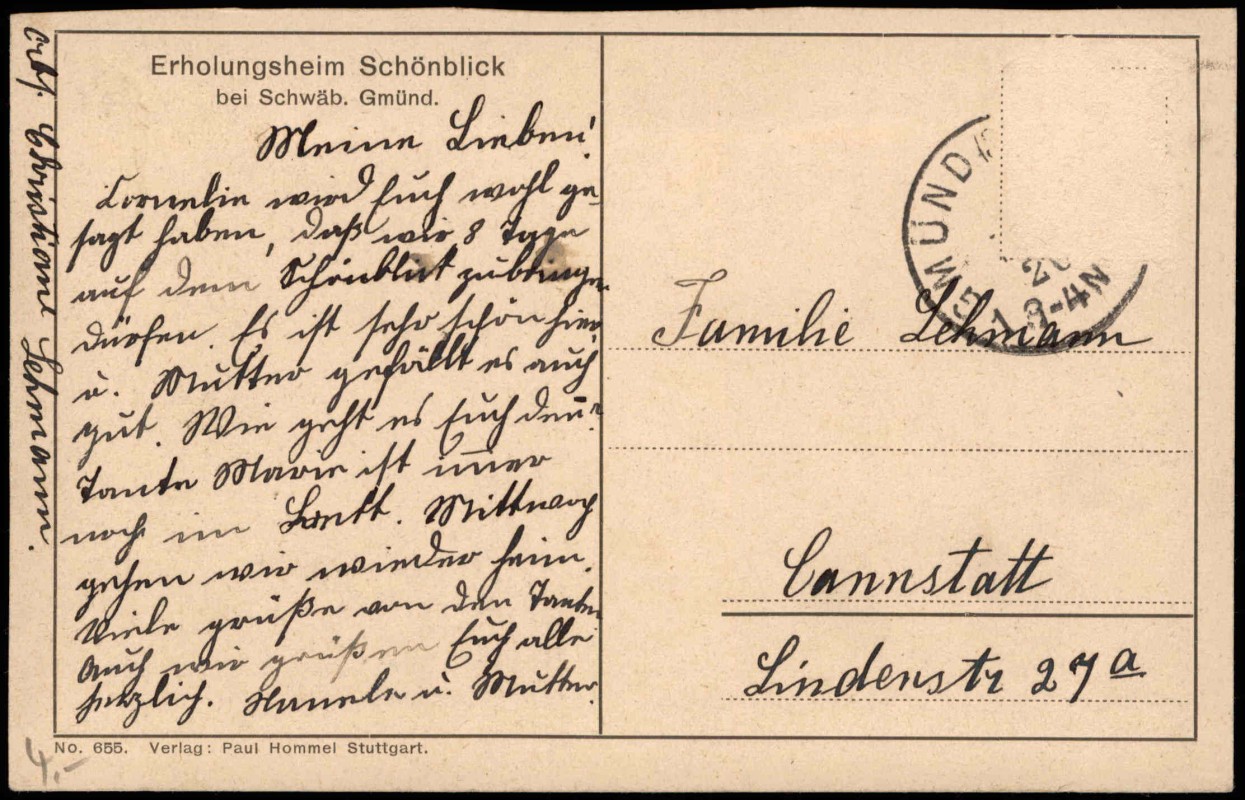 Erholungsheim Schönblick
bei Schwäb. Gmünd.
Meine Lieben!
Cornelie wird Euch wohl ge-
sagt haben, daß wir 8 Tage
auf dem Schönblick zubringen
dürfen. Es ist sehr schön hier
u. Mutter gefällt es auch
gut. Wie geht es Euch denn?
Tante Marie ist im̄er
noch im Bett. Mittwoch
gehen wir wieder heim.
Viele grüße von den Tanten
Auch wir grüßen Euch alle
herzlich. Hannele u. Mutter.
Christiane Lehmann.
GMÜND
20
3-4N
Familie Lehmann
Cannstatt
Lindenstr 27a
No. 655. Verlag: Paul Hommel Stuttgart.
4.-